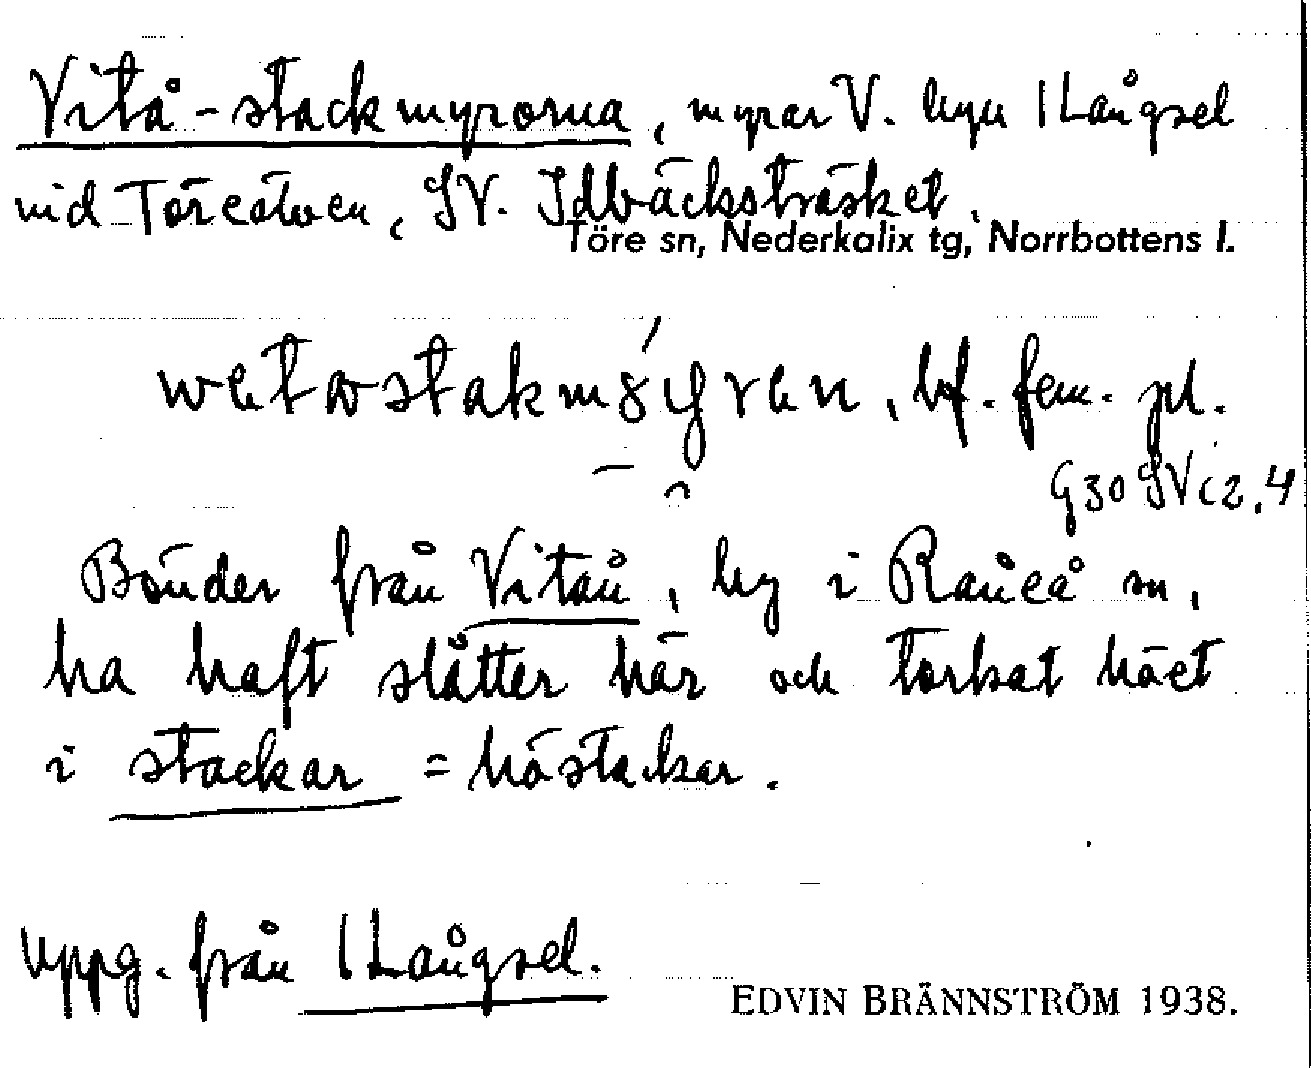 Vitå-stackmyrorna, myrar V. byn 1 Långsel
vid Töreälven, SV. Idbäcksträsket.
Töre sn, Nederkalix tg, Norrbottens l.
bf. fem. pl.
G30 SV c2.4
Bönder från Vitån, by i Råneå sn,
ha haft slåtter här och torkat höet
i stackar = höstackar.
Uppg. från 1 Långsel.
EDVIN BRÄNNSTRÖM 1938.